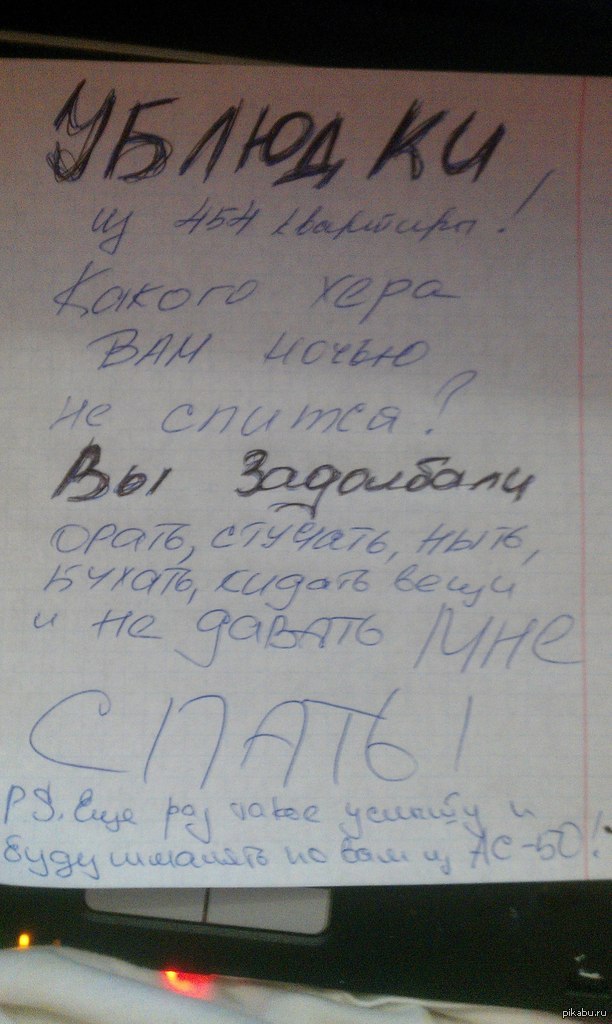 УБЛЮДКИ
из 454 квартиры!
Какого хера
ВАМ ночью
не спится?
Вы Задолбали
орать, стучать, ныть,
бухать, кидать вещи
и не давать мне
СПАТЬ!
P.S. Еще раз такое услышу и
буду шмалять по вам из АС-50!
pikabu.ru